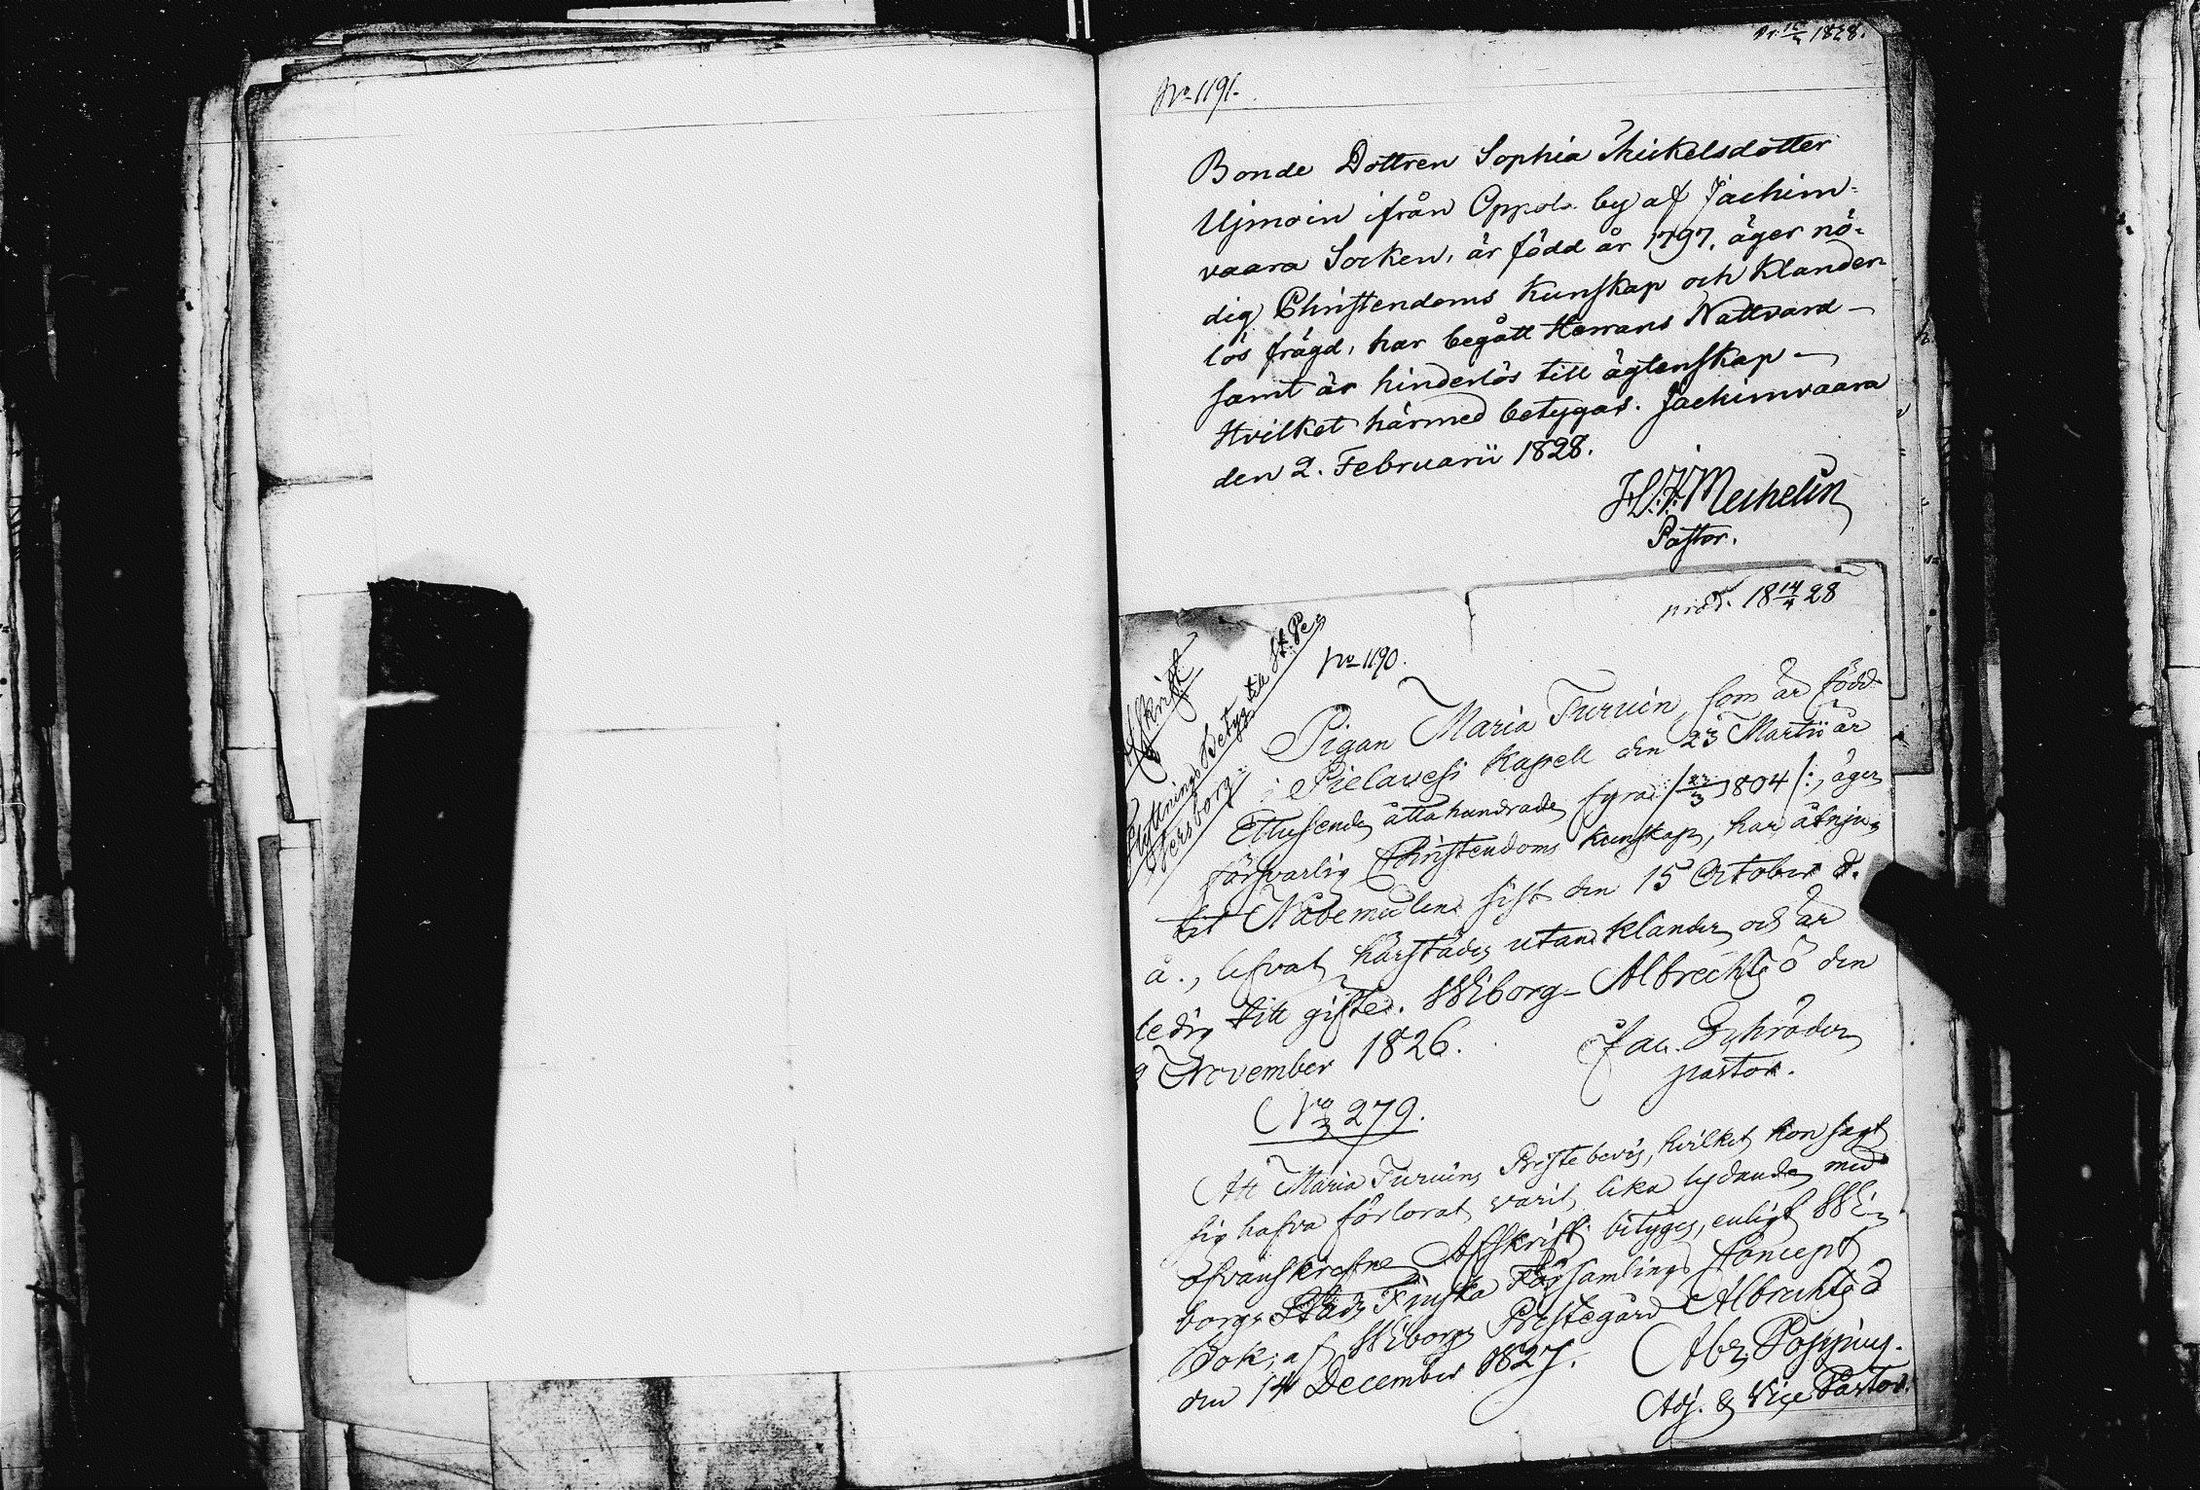 1828.
No 1191.
Bonde Dottren Sophia Mickelsdotter
Ujmoin ifrån Oppola by af Jachim-
vaara Socken, är född år 1797, äger nö-
dig Christendoms kunskap och klander-
lös frägd, har begått Herrans Nattvard
samt är hinderlös till ägtenskap
Hvilket härmed betygas. Jachimvaara
den 2. Februarii 1828.
Mechelin
Pastor.
prod. 18 14/4 28
Afskrift
Flyttnings Betyg till St. Pe-
tersborg.
No 1190.
Pigan Maria Turuin, som är född
i Pielavesi Kapell den 23 Martii år
Ettusende åttahundrade fyra /: 23/3 1804 :/, äger
försvarlig Christendoms kunskap, har åtnju-
tit Nådemedlen sist den 15 October d.
å., lefvat härstädes utan klander och är
ledig till gifte. Wiborg Albrechtsö den
9 November 1826.
Jac. Schröder
pastor.
No 279.
Att Maria Turuins Prestebevis, hvilket hon sagt
sig hafva förlorat, varit lika lydande med
ofvanskrefne Afskrift betygas, enligt Wi-
borgs Stads Finska Församlings Concept
Bok; af Wiborgs Prestegård Albrechtsö
den 14 December 1827.
Abr. Poppius.
Adj. & Vice Pastor.